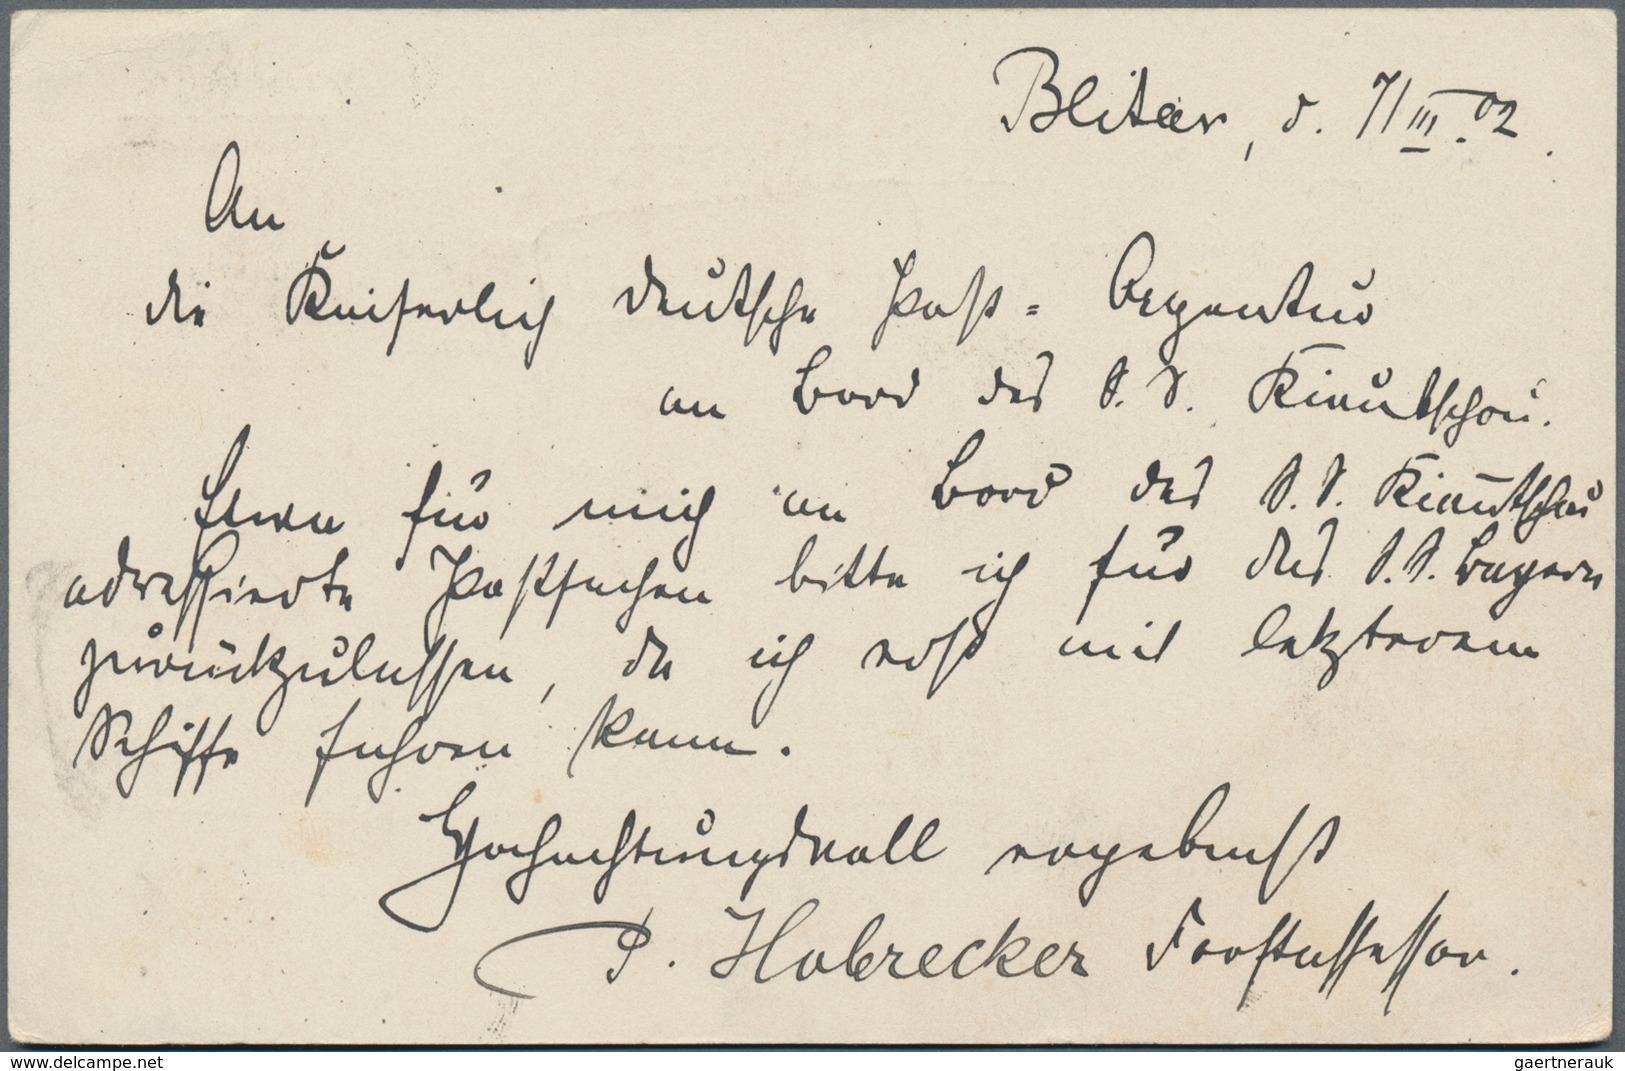 Blitar, d. 7/III.02.
An
die Kaiserlich deutsche Post-Agentur
an Bord des S.S. Kiautschou.
Etwa für mich an Bord des S.S. Kiautschou
adressierte Postsachen bitte ich für des S.S. Bayern
zurückzulassen, da ich erst mit letzterem
Schiffe fahren kann.
Hochachtungsvoll ergebenst
P. Habrecker Forstassessor.
www.delcampe.net
gaertnerauk